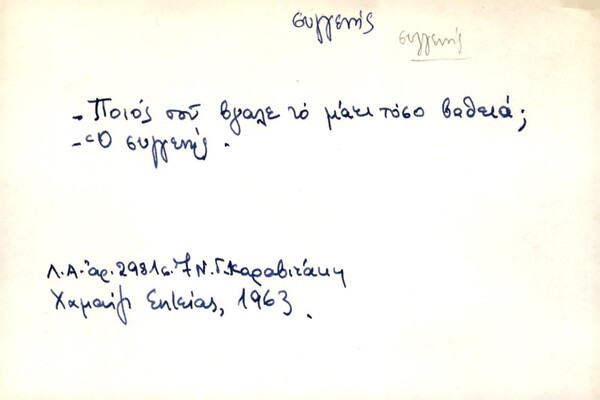 συγγενής
συγγενής
- Ποιός σοῦ ἔβγαλε τό μάτι τόσο βαθειά;
- Ὁ συγγενής.
Λ.Α. ἀρ. 2981 σ. 7 Ν. Γ. Καραβιτάκη
Χαμαίζι Σητείας, 1963.